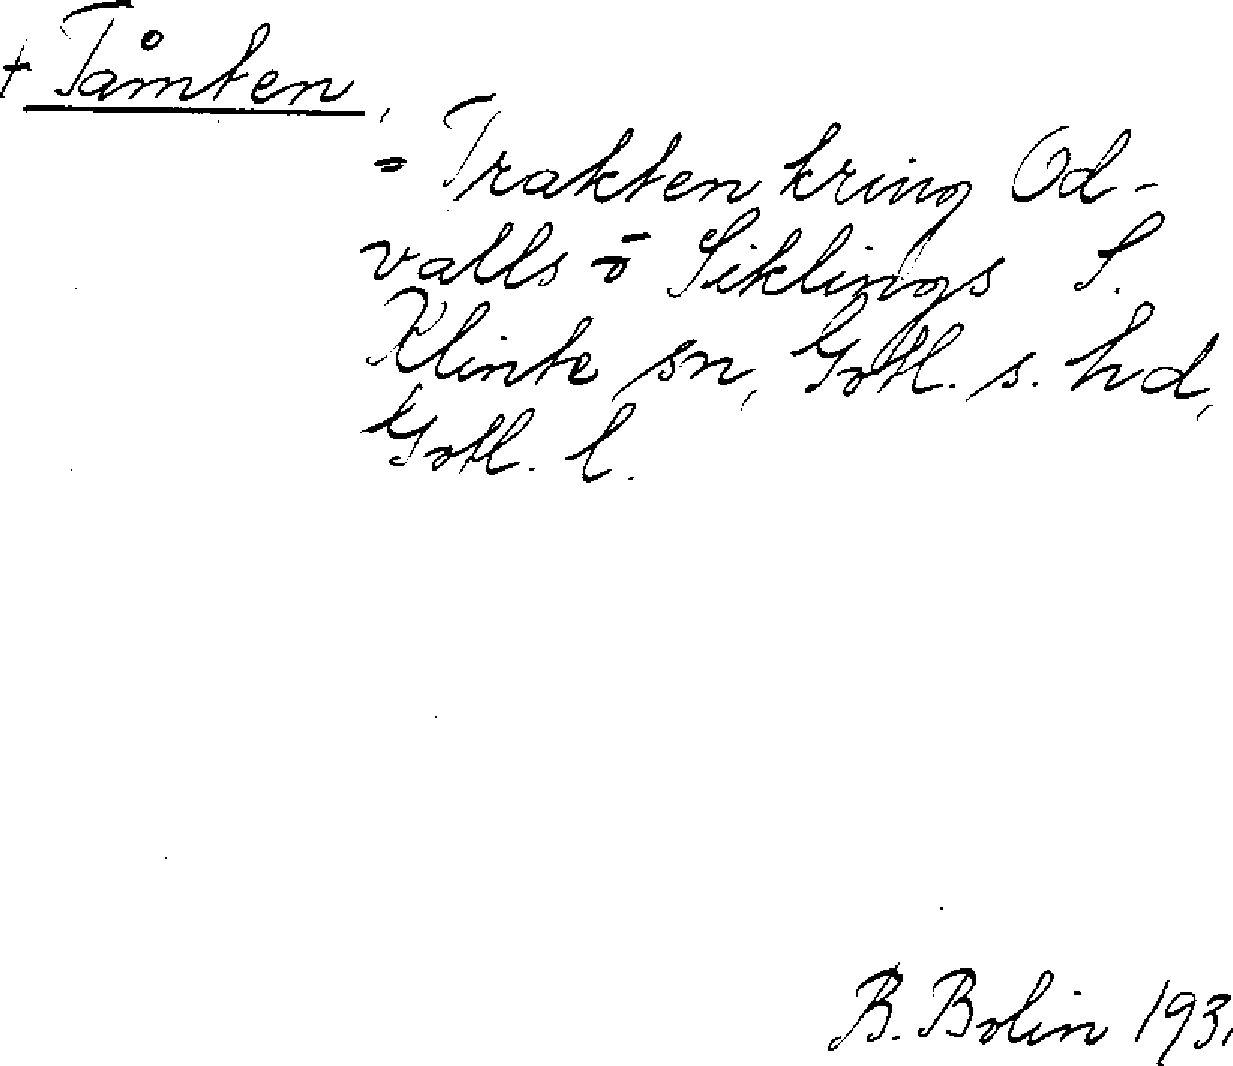 + Tåmten,
= Trakten kring Od-
valls o Siklings S.
Klinte sn, Gotl. s. hd,
Gotl. l.
B. Bolin 193